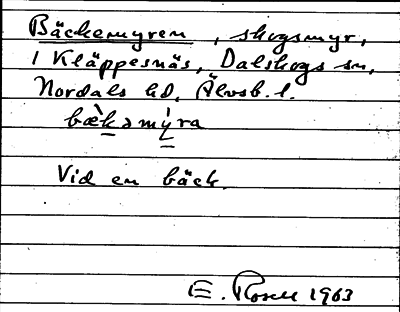 Bäckemyren, skogsmyr,
1 Kläppesnäs, Dalskogs sn,
Nordals hd, Älvsb. l.
bæ̀kəmýra
Vid en bäck.
E. Rosell 1963